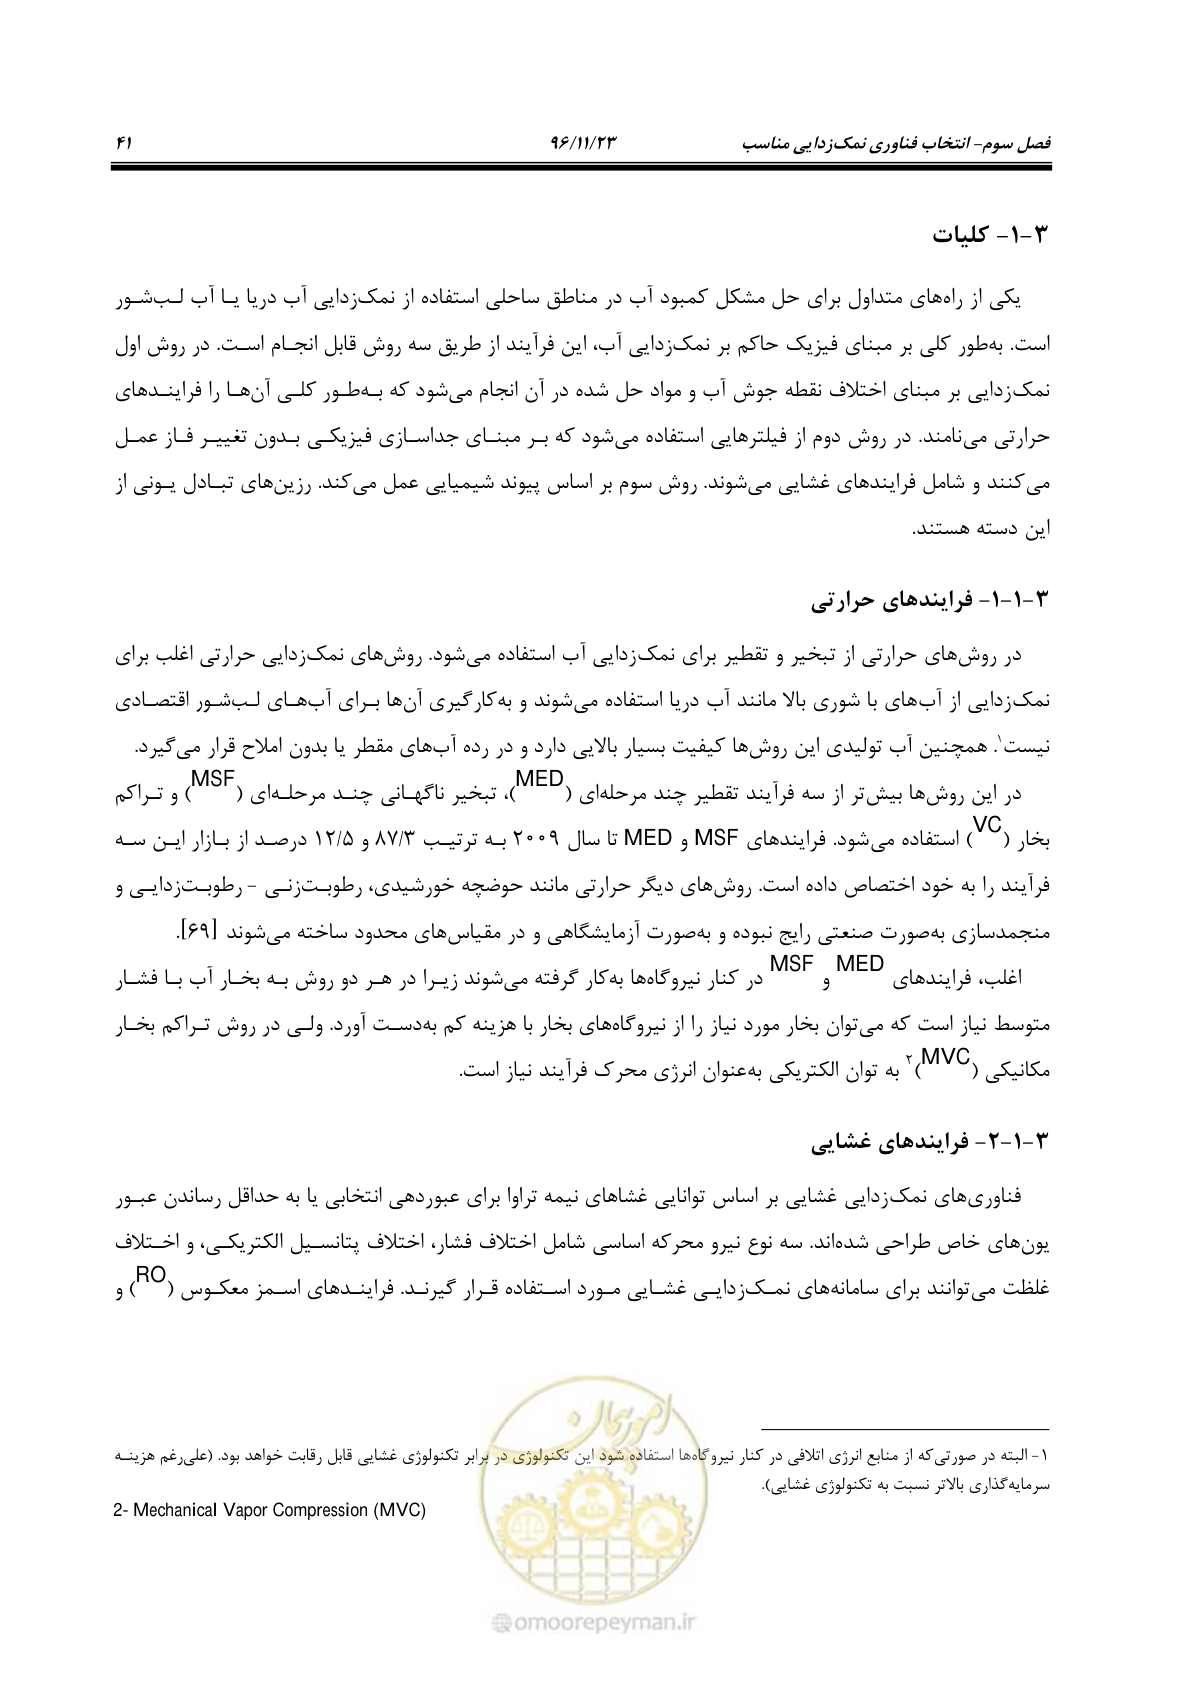 فصل سوم- انتخاب فناوری نمک‌زدایی مناسب ۹۶/۱۱/۲۳ ۴۱
۳-۱- کلیات
یکی از راه‌های متداول برای حل مشکل کمبود آب در مناطق ساحلی استفاده از نمک‌زدایی آب دریا یـا آب لـب‌شـور
است. به‌طور کلی بر مبنای فیزیک حاکم بر نمک‌زدایی آب، این فرآیند از طریق سه روش قابل انجـام اسـت. در روش اول
نمک‌زدایی بر مبنای اختلاف نقطه جوش آب و مواد حل شده در آن انجام می‌شود که بـه‌طـور کلـی آن‌هـا را فراینـدهای
حرارتی می‌نامند. در روش دوم از فیلترهایی استفاده می‌شود که بـر مبنـای جداسـازی فیزیکـی بـدون تغییـر فـاز عمـل
می‌کنند و شامل فرایندهای غشایی می‌شوند. روش سوم بر اساس پیوند شیمیایی عمل می‌کند. رزین‌های تبـادل یـونی از
این دسته هستند.
۳-۱-۱- فرایندهای حرارتی
در روش‌های حرارتی از تبخیر و تقطیر برای نمک‌زدایی آب استفاده می‌شود. روش‌های نمک‌زدایی حرارتی اغلب برای
نمک‌زدایی از آب‌های با شوری بالا مانند آب دریا استفاده می‌شوند و به‌کارگیری آن‌ها بـرای آب‌هـای لـب‌شـور اقتصـادی
نیست۱. همچنین آب تولیدی این روش‌ها کیفیت بسیار بالایی دارد و در رده آب‌های مقطر یا بدون املاح قرار می‌گیرد.
در این روش‌ها بیش‌تر از سه فرآیند تقطیر چند مرحله‌ای (MED)، تبخیر ناگهـانی چنـد مرحلـه‌ای (MSF) و تـراکم
بخار (VC) استفاده می‌شود. فرایندهای MSF و MED تا سال ۲۰۰۹ بـه ترتیـب ۸۷/۳ و ۱۲/۵ درصـد از بـازار ایـن سـه
فرآیند را به خود اختصاص داده است. روش‌های دیگر حرارتی مانند حوضچه خورشیدی، رطوبـت‌زنـی - رطوبـت‌زدایـی و
منجمدسازی به‌صورت صنعتی رایج نبوده و به‌صورت آزمایشگاهی و در مقیاس‌های محدود ساخته می‌شوند [۶۹].
اغلب، فرایندهای MED و MSF در کنار نیروگاه‌ها به‌کار گرفته می‌شوند زیـرا در هـر دو روش بـه بخـار آب بـا فشـار
متوسط نیاز است که می‌توان بخار مورد نیاز را از نیروگاه‌های بخار با هزینه کم به‌دسـت آورد. ولـی در روش تـراکم بخـار
مکانیکی (MVC)۲ به توان الکتریکی به‌عنوان انرژی محرک فرآیند نیاز است.
۳-۱-۲- فرایندهای غشایی
فناوری‌های نمک‌زدایی غشایی بر اساس توانایی غشاهای نیمه تراوا برای عبوردهی انتخابی یا به حداقل رساندن عبـور
یون‌های خاص طراحی شده‌اند. سه نوع نیرو محرکه اساسی شامل اختلاف فشار، اختلاف پتانسـیل الکتریکـی، و اخـتلاف
غلظت می‌توانند برای سامانه‌های نمـک‌زدایـی غشـایی مـورد اسـتفاده قـرار گیرنـد. فراینـدهای اسـمز معکـوس (RO) و
۱- البته در صورتی‌که از منابع انرژی اتلافی در کنار نیروگاه‌ها استفاده شود این تکنولوژی در برابر تکنولوژی غشایی قابل رقابت خواهد بود. (علی‌رغم هزینـه
سرمایه‌گذاری بالاتر نسبت به تکنولوژی غشایی).
2- Mechanical Vapor Compression (MVC)
امور پیمان
@omoorepeyman.ir